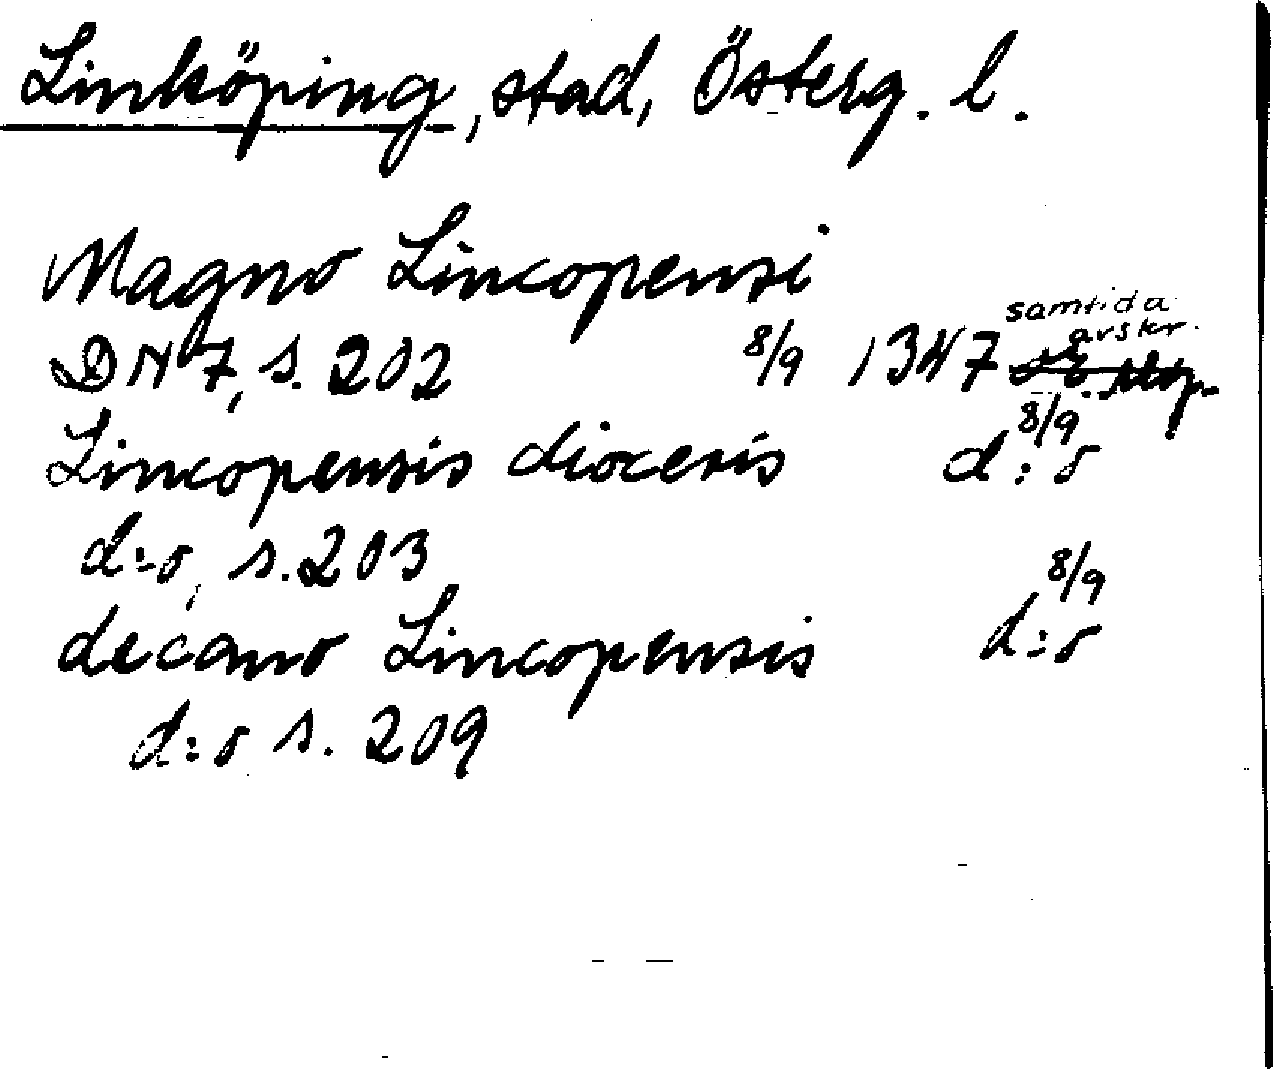 Linköping, stad, Österg. l.
Magno Lincopensi
DN 7, s. 202 8/9 1347 samtida avskr.
Lincopensis diocesis d:o 8/9
d:o, s. 203
decano Lincopensis d:o 8/9
d:o s. 209